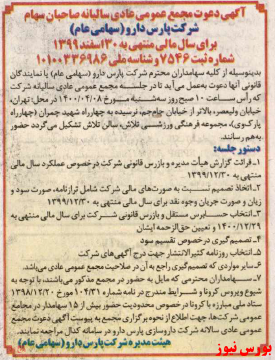 آگهی دعوت مجمع عمومی عادی سالیانه صاحبان سهام
شرکت پارس دارو (سهامی عام)
برای سال مالی منتهی به ۳۰ اسفند ۱۳۹۹
شماره ثبت ۷۵۴۶ و شناسه ملی ۱۰۱۰۰۳۳۶۹۸۶
بدینوسیله از کلیه سهامداران محترم شرکت پارس دارو (سهامی عام) یا نمایندگان
قانونی آنها دعوت به‌عمل می‌آید تا در جلسه مجمع عمومی عادی سالیانه شرکت
که رأس ساعت ۱۰ صبح روز سه‌شنبه مورخ ۱۴۰۰/۰۴/۰۸ در محل: تهران،
خیابان ولیعصر، بالاتر از خیابان جام‌جم، نرسیده به چهارراه شهید چمران (چهارراه
پارک‌وی)، مجموعه فرهنگی ورزشی تلاش، سالن تلاش تشکیل می‌گردد حضور
به‌هم رسانند.
دستور جلسه:
۱ـ قرائت گزارش هیأت مدیره و بازرس قانونی شرکت در خصوص عملکرد سال مالی
منتهی به ۱۳۹۹/۱۲/۳۰
۲ـ اتخاذ تصمیم نسبت به صورت‌های مالی شرکت شامل ترازنامه، صورت سود و
زیان و صورت جریان وجوه نقد برای سال مالی منتهی به ۱۳۹۹/۱۲/۳۰
۳ـ انتخاب حسابرس مستقل و بازرس قانونی شرکت برای سال مالی منتهی به
۱۴۰۰/۱۲/۲۹ و تعیین حق‌الزحمه ایشان
۴ـ تصمیم‌گیری در خصوص تقسیم سود
۵ـ انتخاب روزنامه کثیرالانتشار جهت درج آگهی‌های شرکت
۶ـ سایر مواردی که تصمیم‌گیری راجع به آن در صلاحیت مجمع عمومی عادی می‌باشد.
سهامداران محترمی که مایل به حضور در مجمع مذکور می‌باشند، با توجه به
شیوع ویروس کرونا و رعایت مفاد مندرج در نامه شماره ۱۰۴۳۱ مورخ ۱۳۹۸/۱۲/۲۰
ستاد ملی مبارزه با کرونا در خصوص محدودیت حضور بیش از ۱۵ سهامدار در مجامع
عمومی شرکت‌ها، جهت اطلاع از نحوه برگزاری مجمع به پیوست آگهی دعوت مجمع
عمومی عادی سالانه شرکت داروسازی پارس دارو در سامانه کدال مراجعه نمایند.
هیئت مدیره شرکت پارس دارو (سهامی عام)
بورس نیوز